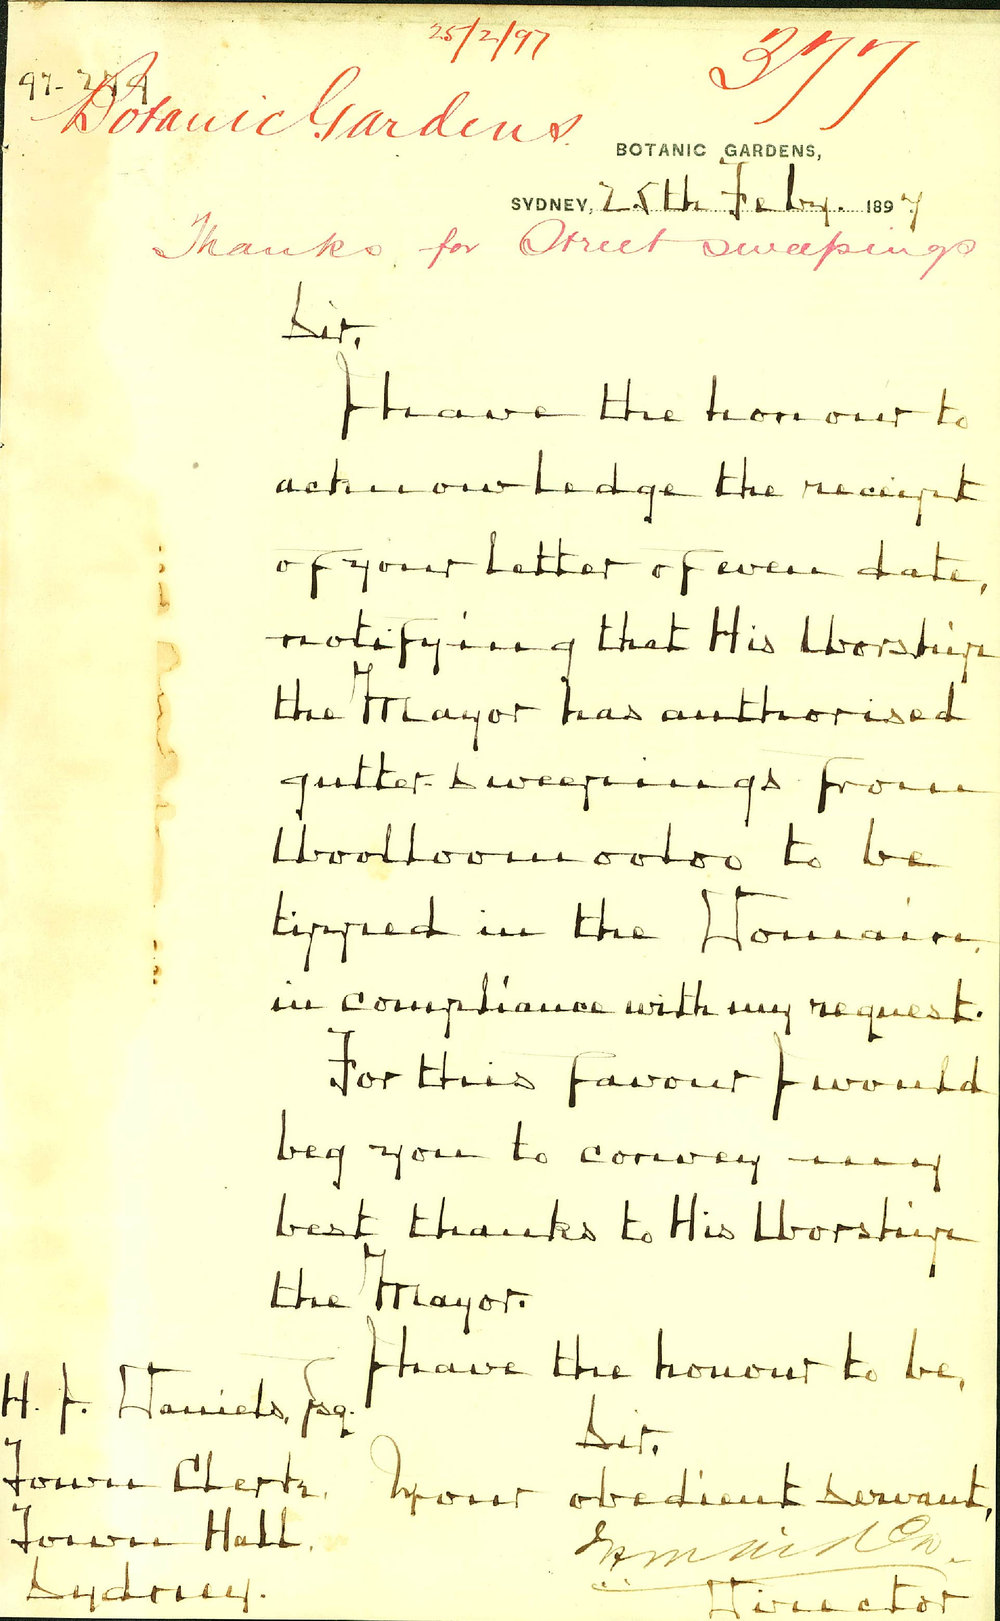 25/2/97
377
97-299
Botanic Gardens
BOTANIC GARDENS,
SYDNEY, 25th Feby. 1897
Thanks for Street sweepings
Sir,
I have the honour to
acknowledge the receipt
of your letter of even date,
notifying that His Worship
the Mayor has authorised
gutter-sweepings from
Woolloomooloo to be
tipped in the Domain,
in compliance with my request.
For this favour I would
beg you to convey my
best thanks to His Worship
the Mayor.
I have the honour to be,
Sir,
Your obedient servant,
Director
H. J. Daniels, Esq.
Town Clerk,
Town Hall,
Sydney.